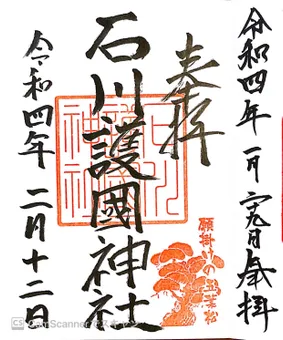 令和四年一月二十九日奉拝
奉拝
石川護國神社
令和四年二月十二日
願掛けの
CamScanner でスキャン